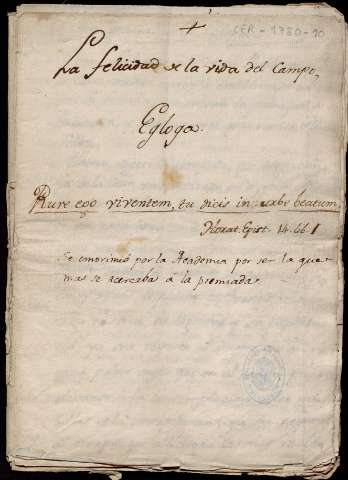 +
CER-1780-10
La felicidad de la vida del Campo,
Egloga.
Rure ego viventem, tu dicis in urbe beatum,
Horat. Epist. 14. lib. 1
Se imprimió por la Academia por ser la que
mas se acercaba à la premiada.